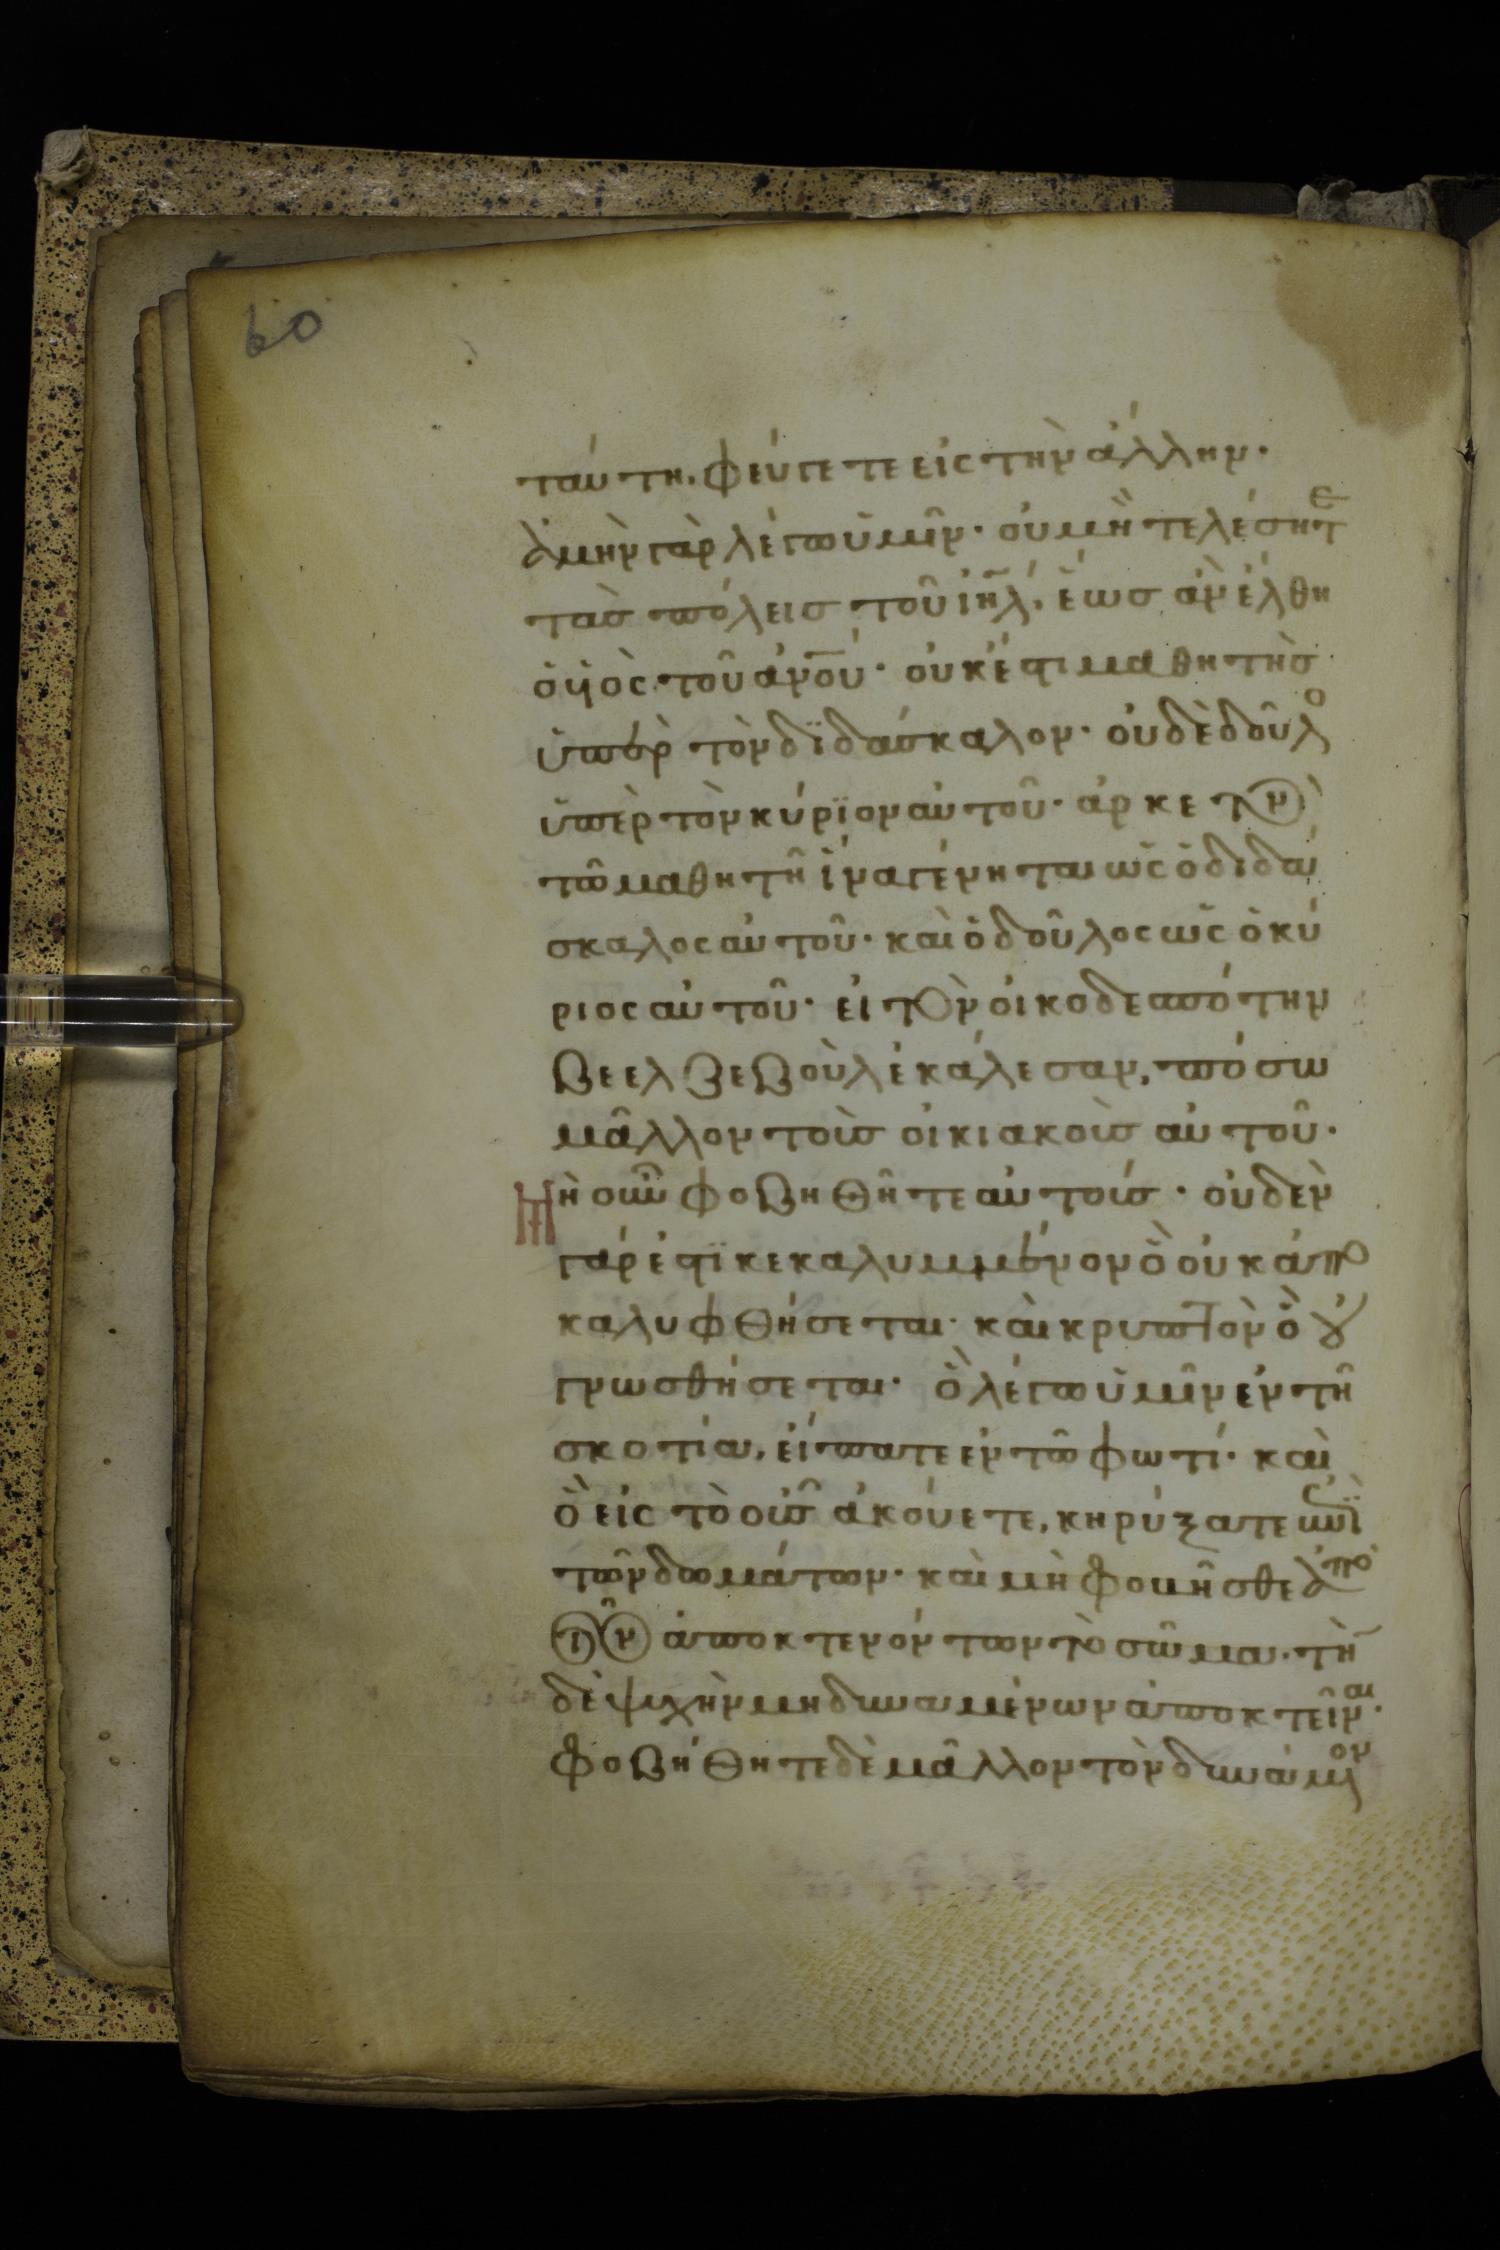 60
ταύτη. φεύγετε εἰς τὴν ἄλλην·
ἀμὴν γὰρ λέγω ὑμῖν· οὐ μὴ τελέσητε
τὰς πόλεις τοῦ ἰη̅λ, ἕως ἂν ἔλθη
ὁ υἱὸς τοῦ ἀν̅ου· οὐκ ἔστι μαθητὴς
ὑπὲρ τὸν διδάσκαλον· οὐδὲ δοῦλο
ὑπὲρ τὸν κύριον αὐτοῦ· ἀρκετὸν
τῶ μαθητῆ ἵνα γένηται ὡς ὁ διδά
σκαλος αὐτοῦ· καὶ ὁ δοῦλος ὡς ὁ κύ
ριος αὐτοῦ· εἰ τὸν οἰκοδεσπότην
βεελζεβοὺλ ἐκάλεσαν, πόσω
μᾶλλον τοὺς οἰκιακοὺς αὐτοῦ·
Μὴ οὖν φοβηθῆτε αὐτούς· οὐδὲν
γάρ ἐστι κεκαλυμμένον ὃ οὐκ ἀπο
καλυφθήσεται· καὶ κρυπτὸν ὃ οὐ
γνωσθήσεται· ὃ λέγω ὑμῖν ἐν τῆ
σκοτία, εἴπατε ἐν τῶ φωτί· καὶ
ὃ εἰς τὸ οὖς ἀκούετε, κηρύξατε ἐπὶ
τῶν δωμάτων· καὶ μὴ φοβῆσθε ἀπὸ
τῶν ἀποκτενόντων τὸ σῶμα. τὴν
δὲ ψυχὴν μὴ δυναμένων ἀποκτεῖναι·
φοβήθητε δὲ μᾶλλον τὸν δυνάμενον